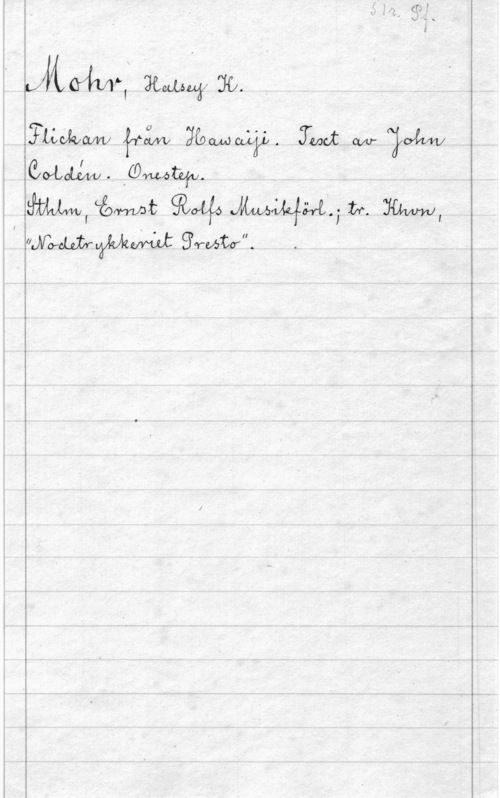 Pf.
Mohr, Halsey K.
Flickan från Hawaiji. Text av John
Coldén. Onestep.
Sthlm, Ernst Rolfs Musikförl.; tr. Khvn,
"Nodetrykkeriet Presto".